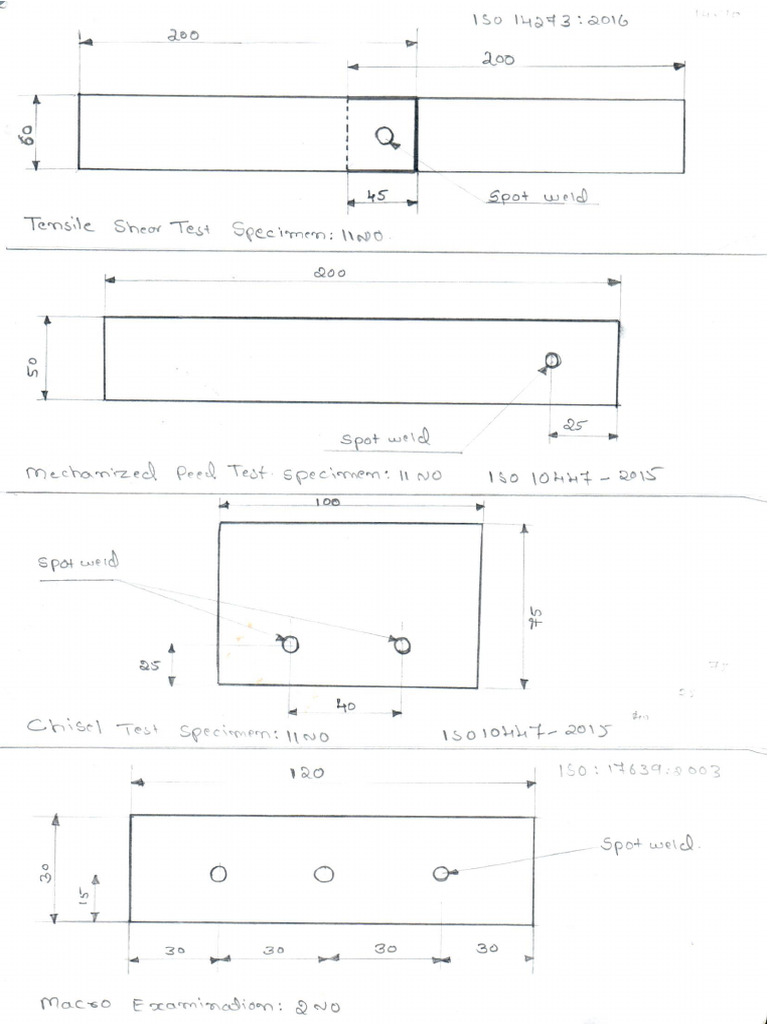 ISO 14273:2016
200
200
60
45
Spot weld
Tensile Shear Test Specimen: 11NO.
200
50
25
Spot weld
Mechanized Peed Test. Specimen: 11 NO ISO 10447-2015
100
Spot weld
75
25
40
Chisel Test Specimen: 11NO ISO10447-2015
120
ISO: 17639:2003
Spot weld.
30
15
30 30 30 30
Macro Examination: 2 NO